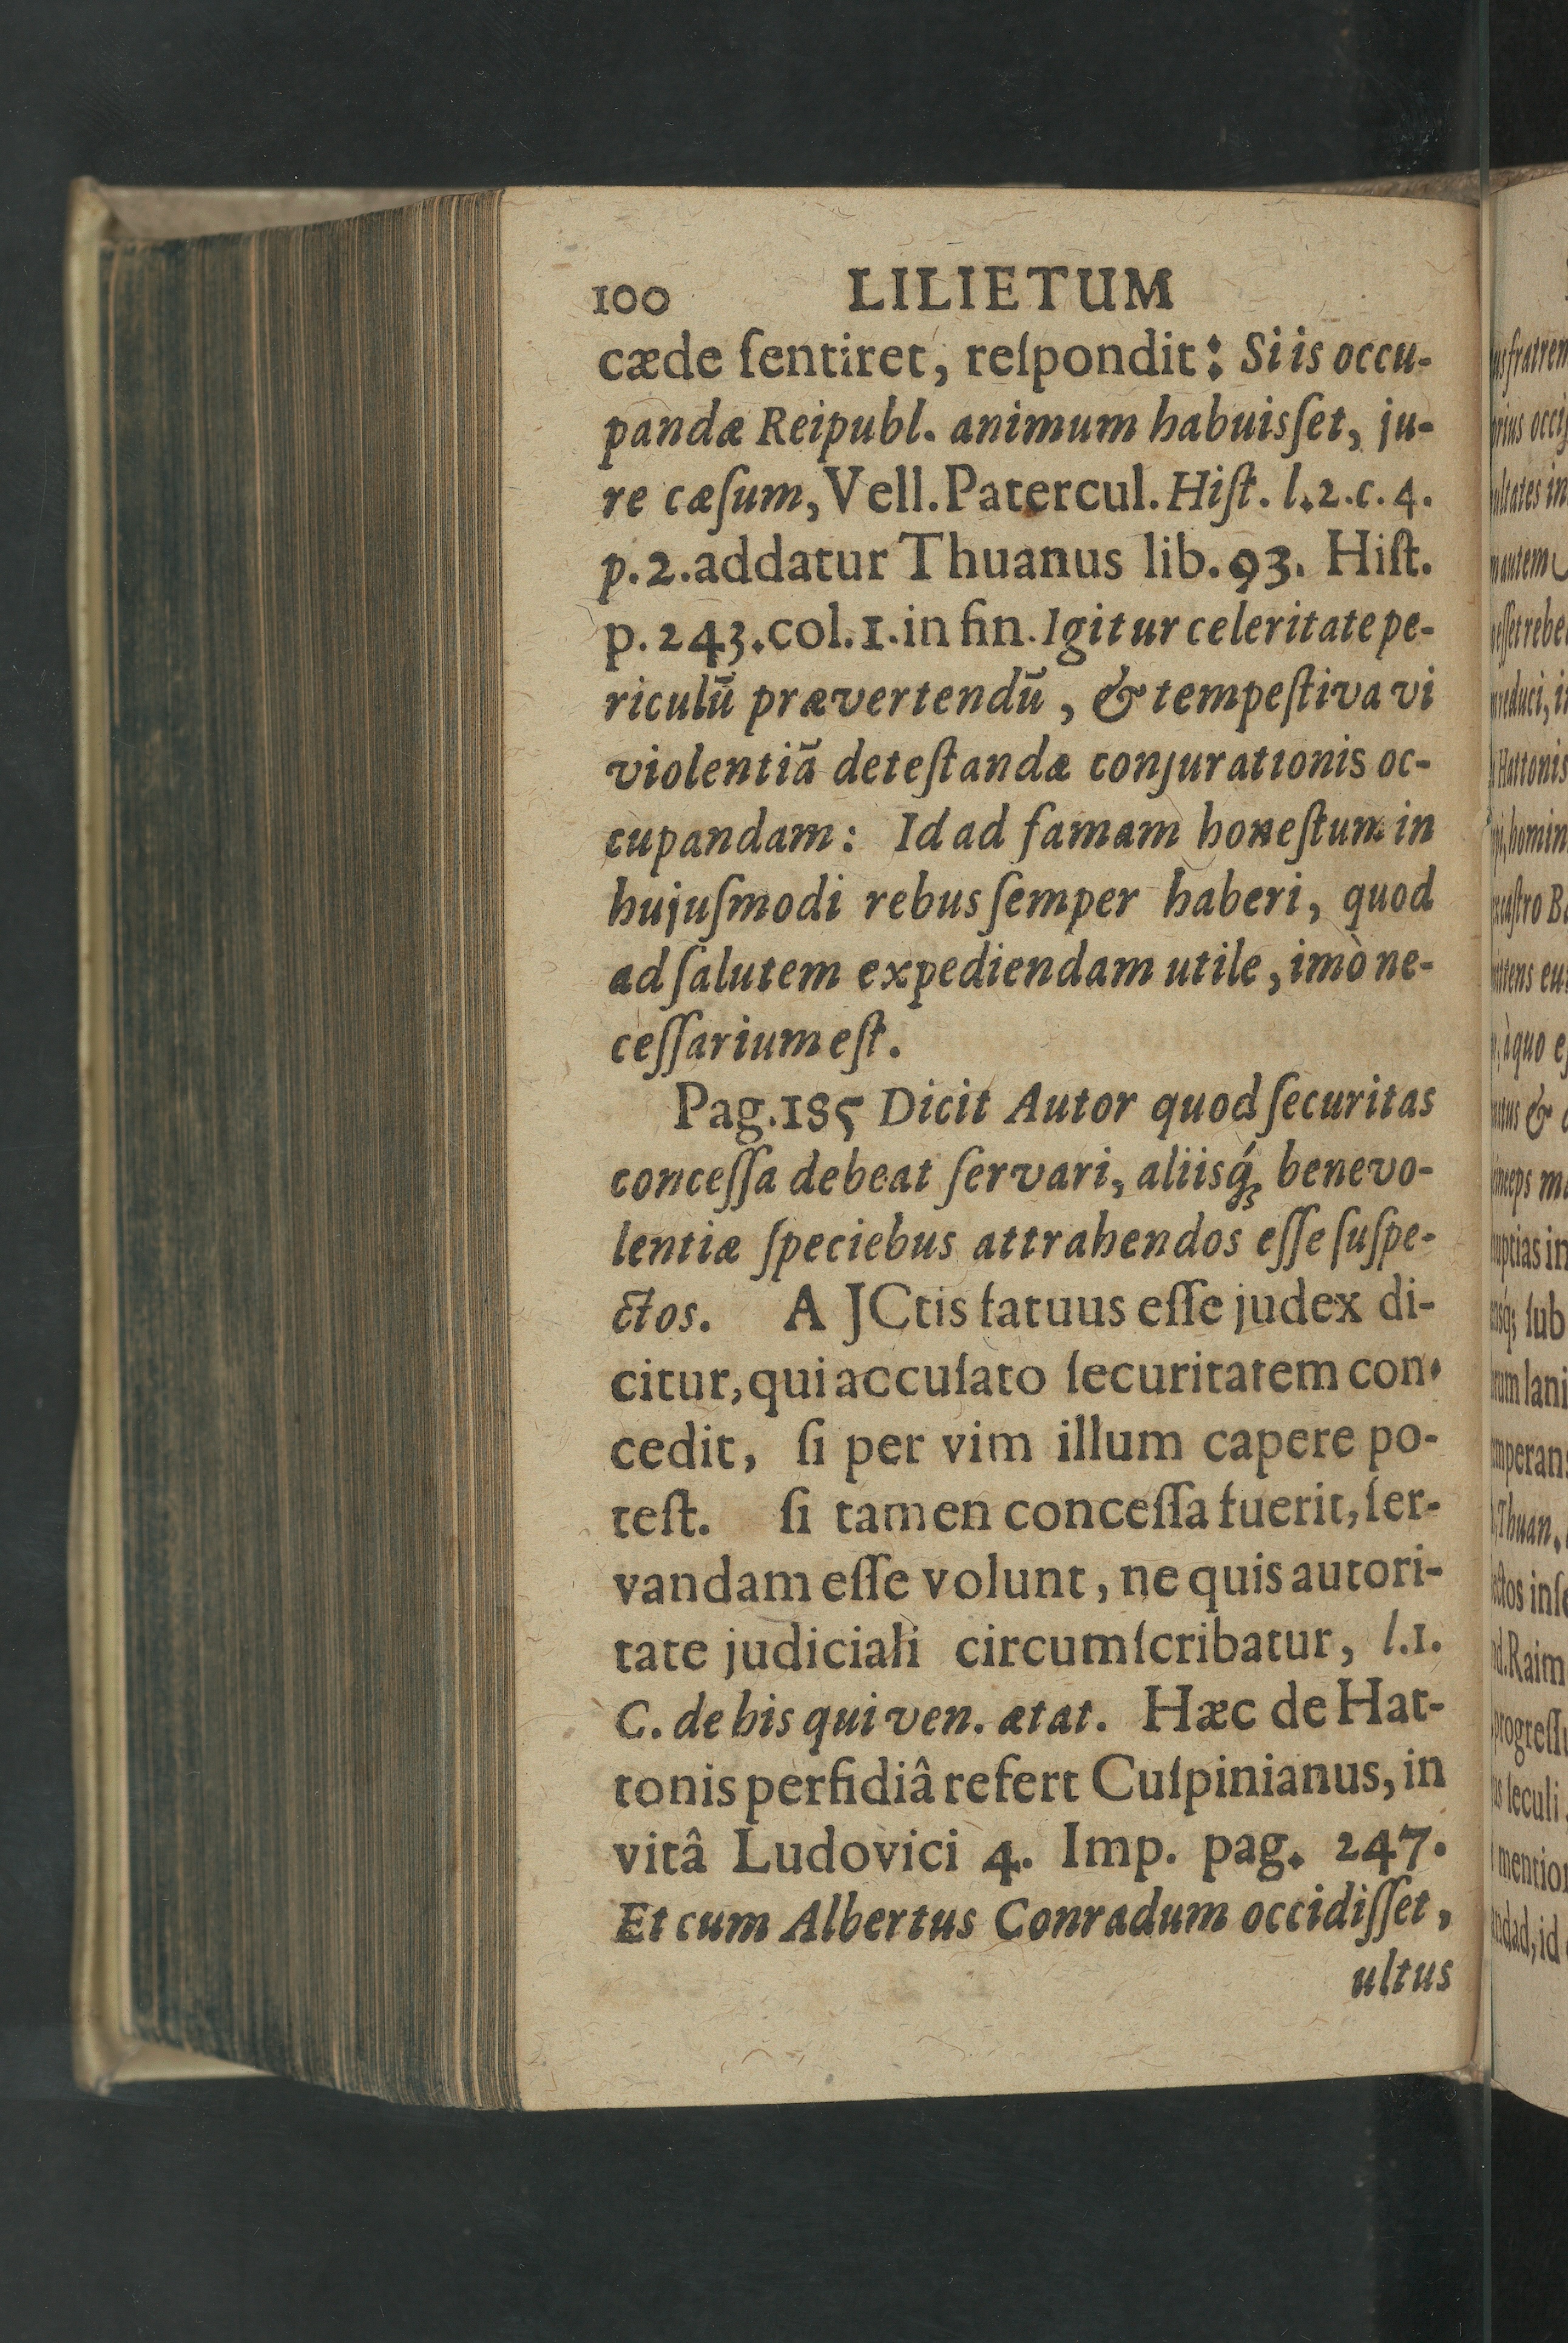 100 LILIETUM
cæde ſentiret, reſpondit: Si is occu-
pandæ Reipubl. animum habuisſet, ju-
re cæſum, Vell. Patercul. Hiſt. l. 2. c. 4.
p. 2. addatur Thuanus lib. 93. Hiſt.
p. 243. col. 1. in fin. Igitur celeritate pe-
riculū prævertendū, & tempeſtiva vi
violentiā deteſtandæ conjurationis oc-
cupandam: Id ad famam honeſtum in
hujuſmodi rebus ſemper haberi, quod
ad ſalutem expediendam utile, imò ne-
ceſſarium eſt.
Pag. 185 Dicit Autor quod ſecuritas
conceſſa debeat ſervari, aliisq́ꝫ benevo-
lentiæ ſpeciebus attrahendos eſſe ſuſpe-
ctos. A JCtis fatuus eſſe judex di-
citur, qui accuſato ſecuritatem con-
cedit, ſi per vim illum capere po-
teſt. ſi tamen conceſſa fuerit, ſer-
vandam eſſe volunt, ne quis autori-
tate judiciali circumſcribatur, l. 1.
C. de his qui ven. ætat. Hæc de Hat-
tonis perfidiâ refert Cuſpinianus, in
vitâ Ludovici 4. Imp. pag. 247.
Et cum Albertus Conradum occidiſſet,
ultus